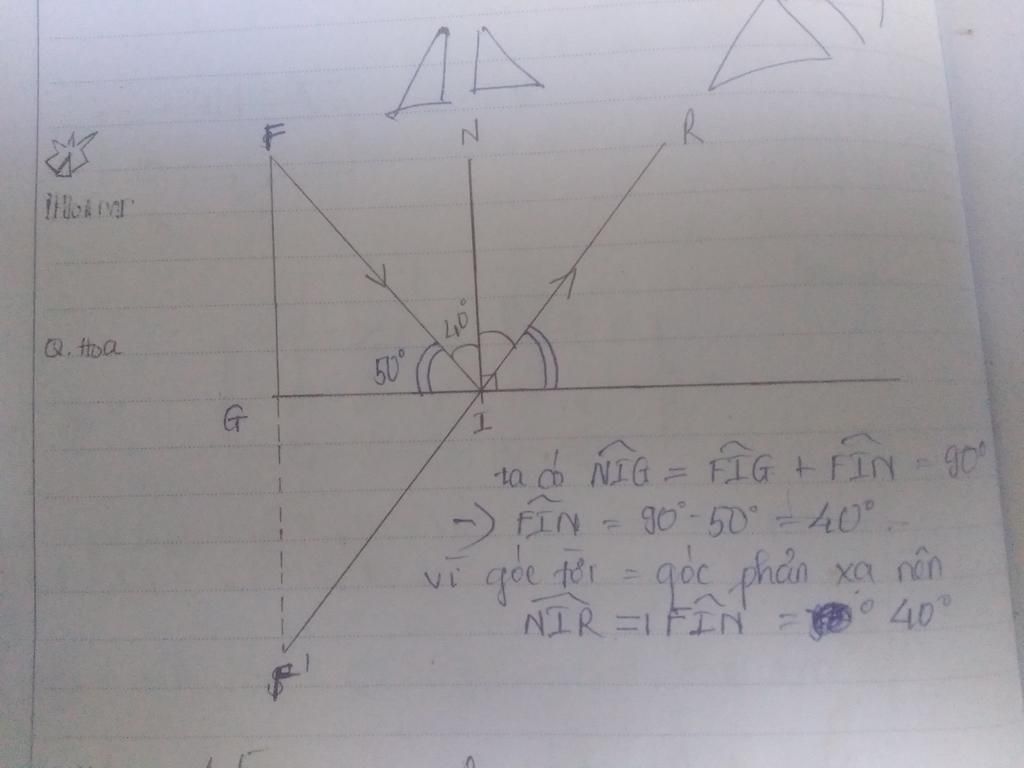 F N R
40°
Q. Hoa
50°
G I
ta có NIG = FIG + FIN = 90°
-) FIN = 90° - 50° = 40°.
vì góc tới = góc phản xạ nên
NIR = FIN = ° 40°
F'